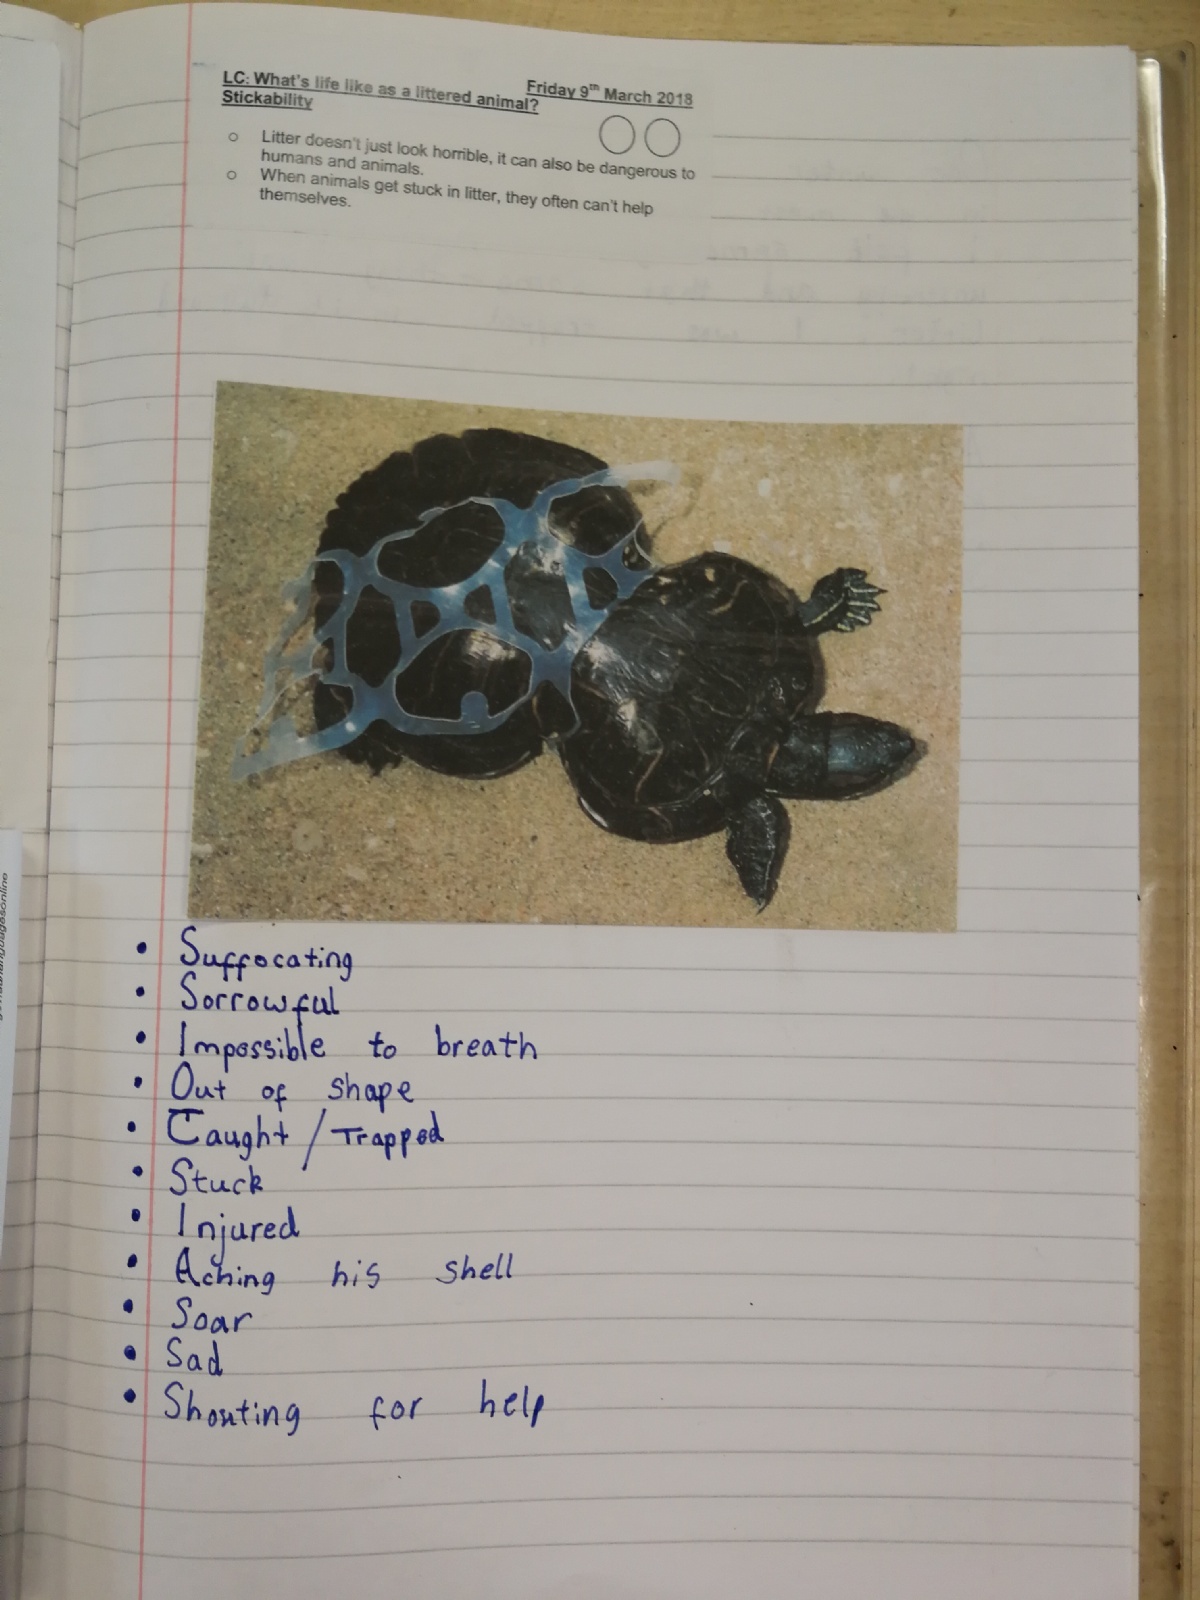 LC: What's life like as a littered animal? Friday 9th March 2018
Stickability
o Litter doesn't just look horrible, it can also be dangerous to
humans and animals.
o When animals get stuck in litter, they often can't help
themselves.
• Suffocating
• Sorrowful
• Impossible to breath
• Out of shape
• Caught / Trapped
• Stuck
• Injured
• Aching his shell
• Soar
• Sad
• Shouting for help